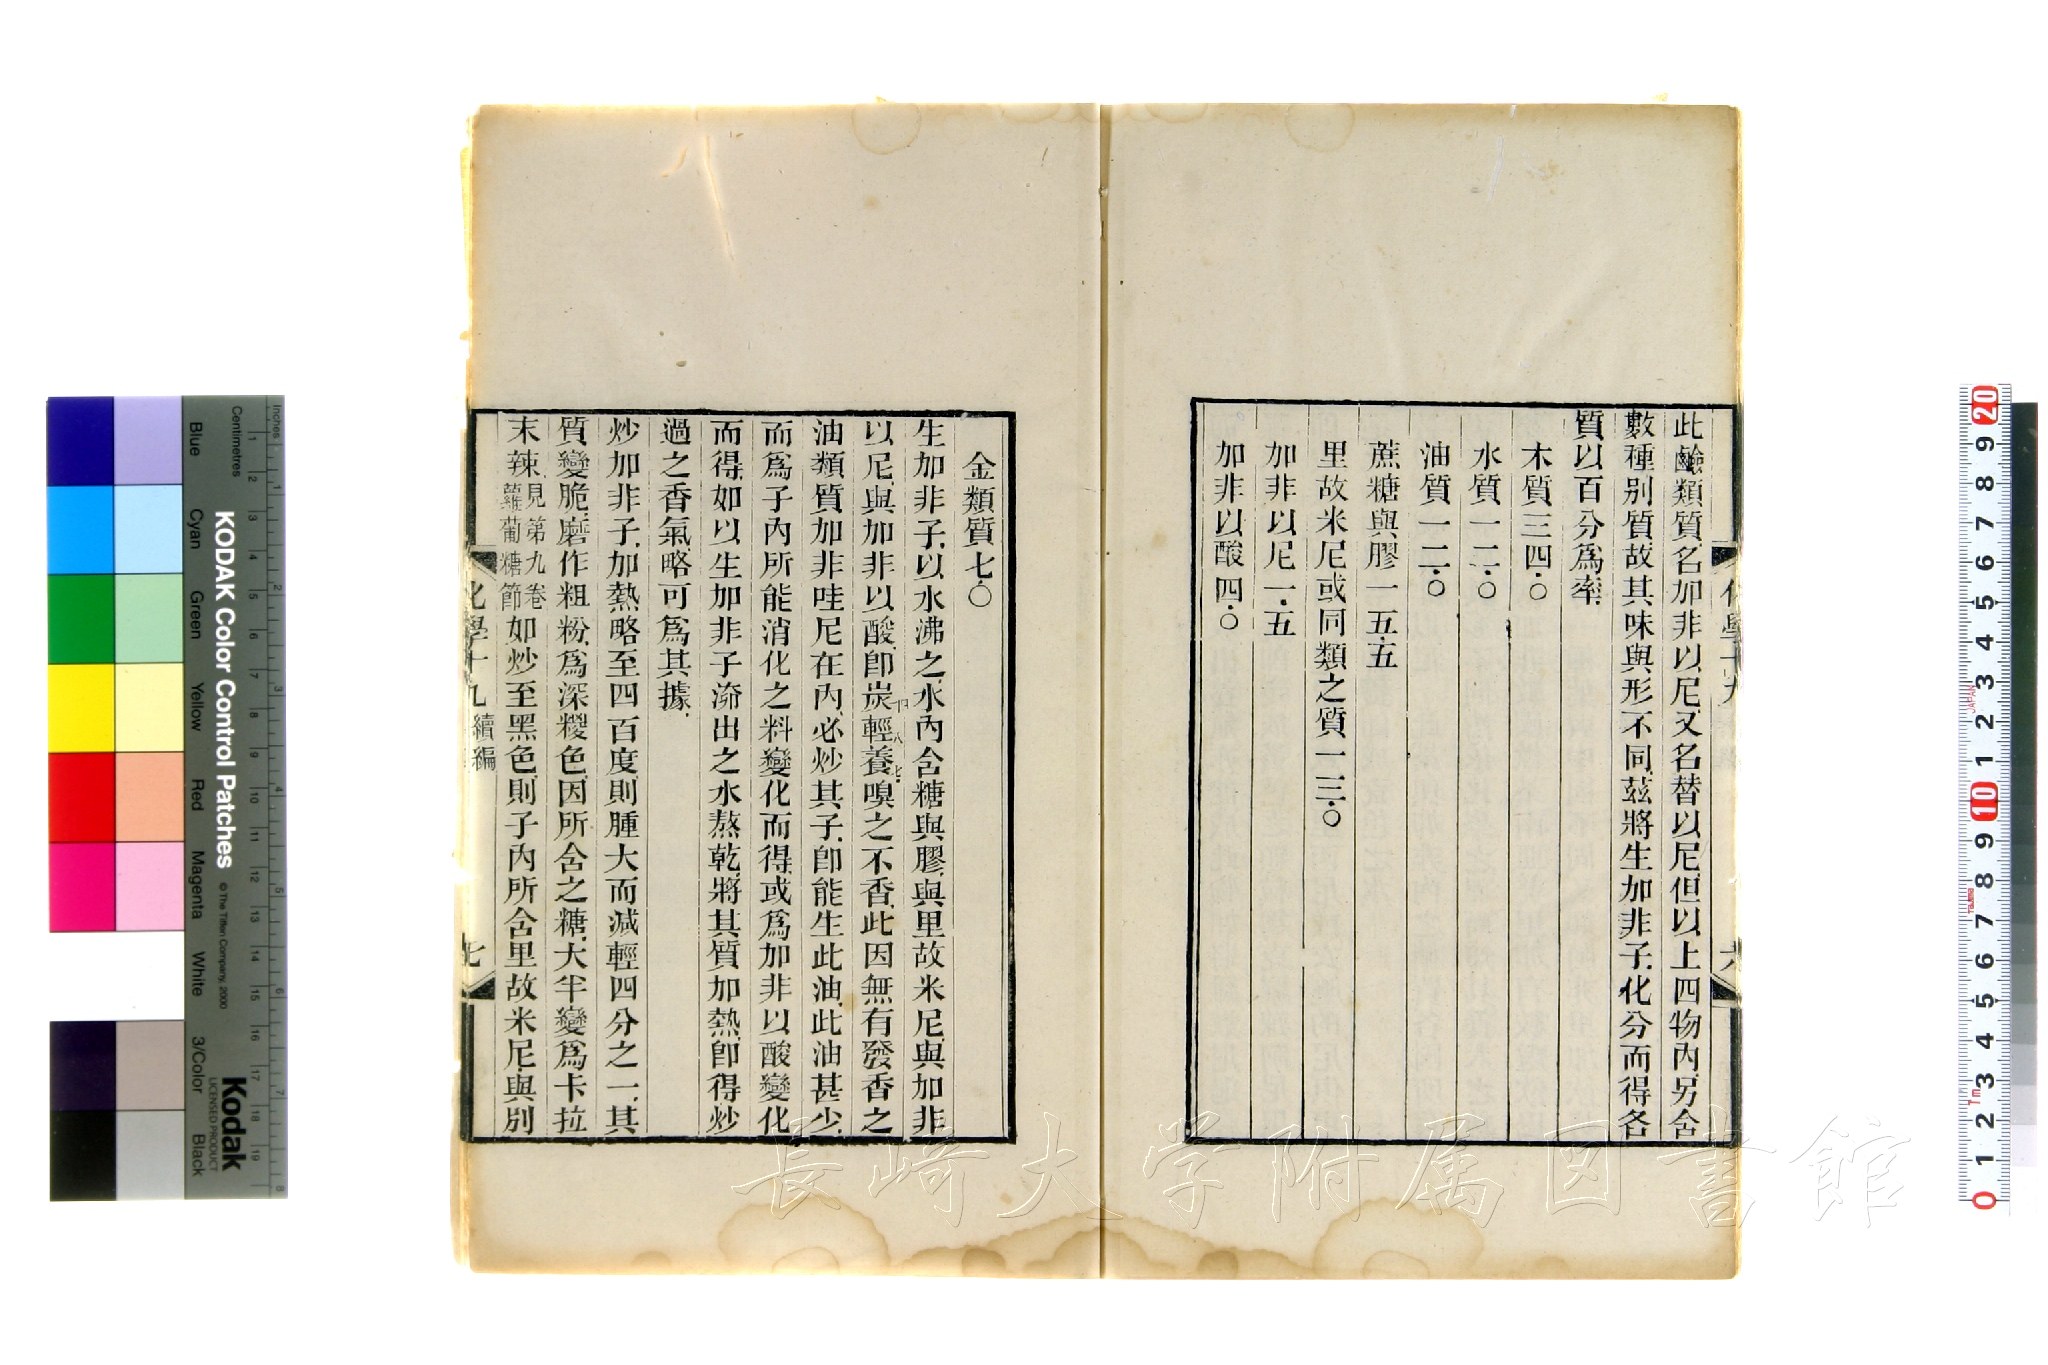 此鹼類質名加非以尼又名替以尼但以上四物內另含
數種別質故其味與形不同茲將生加非子化分而得各
質以百分爲率
木質三四.〇
水質一二.〇
油質一二.〇
蔗糖與膠一五.五
里故米尼或同類之質一三.〇
加非以尼一.五
加非以酸四.〇
化學十九
六
金類質七.〇
生加非子以水沸之水內含糖與膠與里故米尼與加非
以尼與加非以酸卽炭輕養嗅之不香此因無有發香之
油類質加非哇尼在內必炒其子卽能生此油此油甚少
而爲子內所能消化之料變化而得或爲加非以酸變化
而得如以生加非子㳽出之水熬乾將其質加熱卽得炒
過之香氣略可爲其據
炒加非子加熱略至四百度則腫大而減輕四分之一其
質變脆磨作粗粉爲深椶色因所含之糖大半變爲卡拉
末辣見第九卷蘿蔔糖節如炒至黑色則子內所含里故米尼與別
化學十九 續編
七
長崎大学附属図書館
Inches
Centimetres
KODAK Color Control Patches
© The Tiffen Company, 2000
Blue
Cyan
Green
Yellow
Red
Magenta
White
3/Color
Black
Kodak
LICENSED PRODUCT
20
9
8
7
6
5
4
3
2
1
10
9
8
7
6
5
4
3
2
1
0